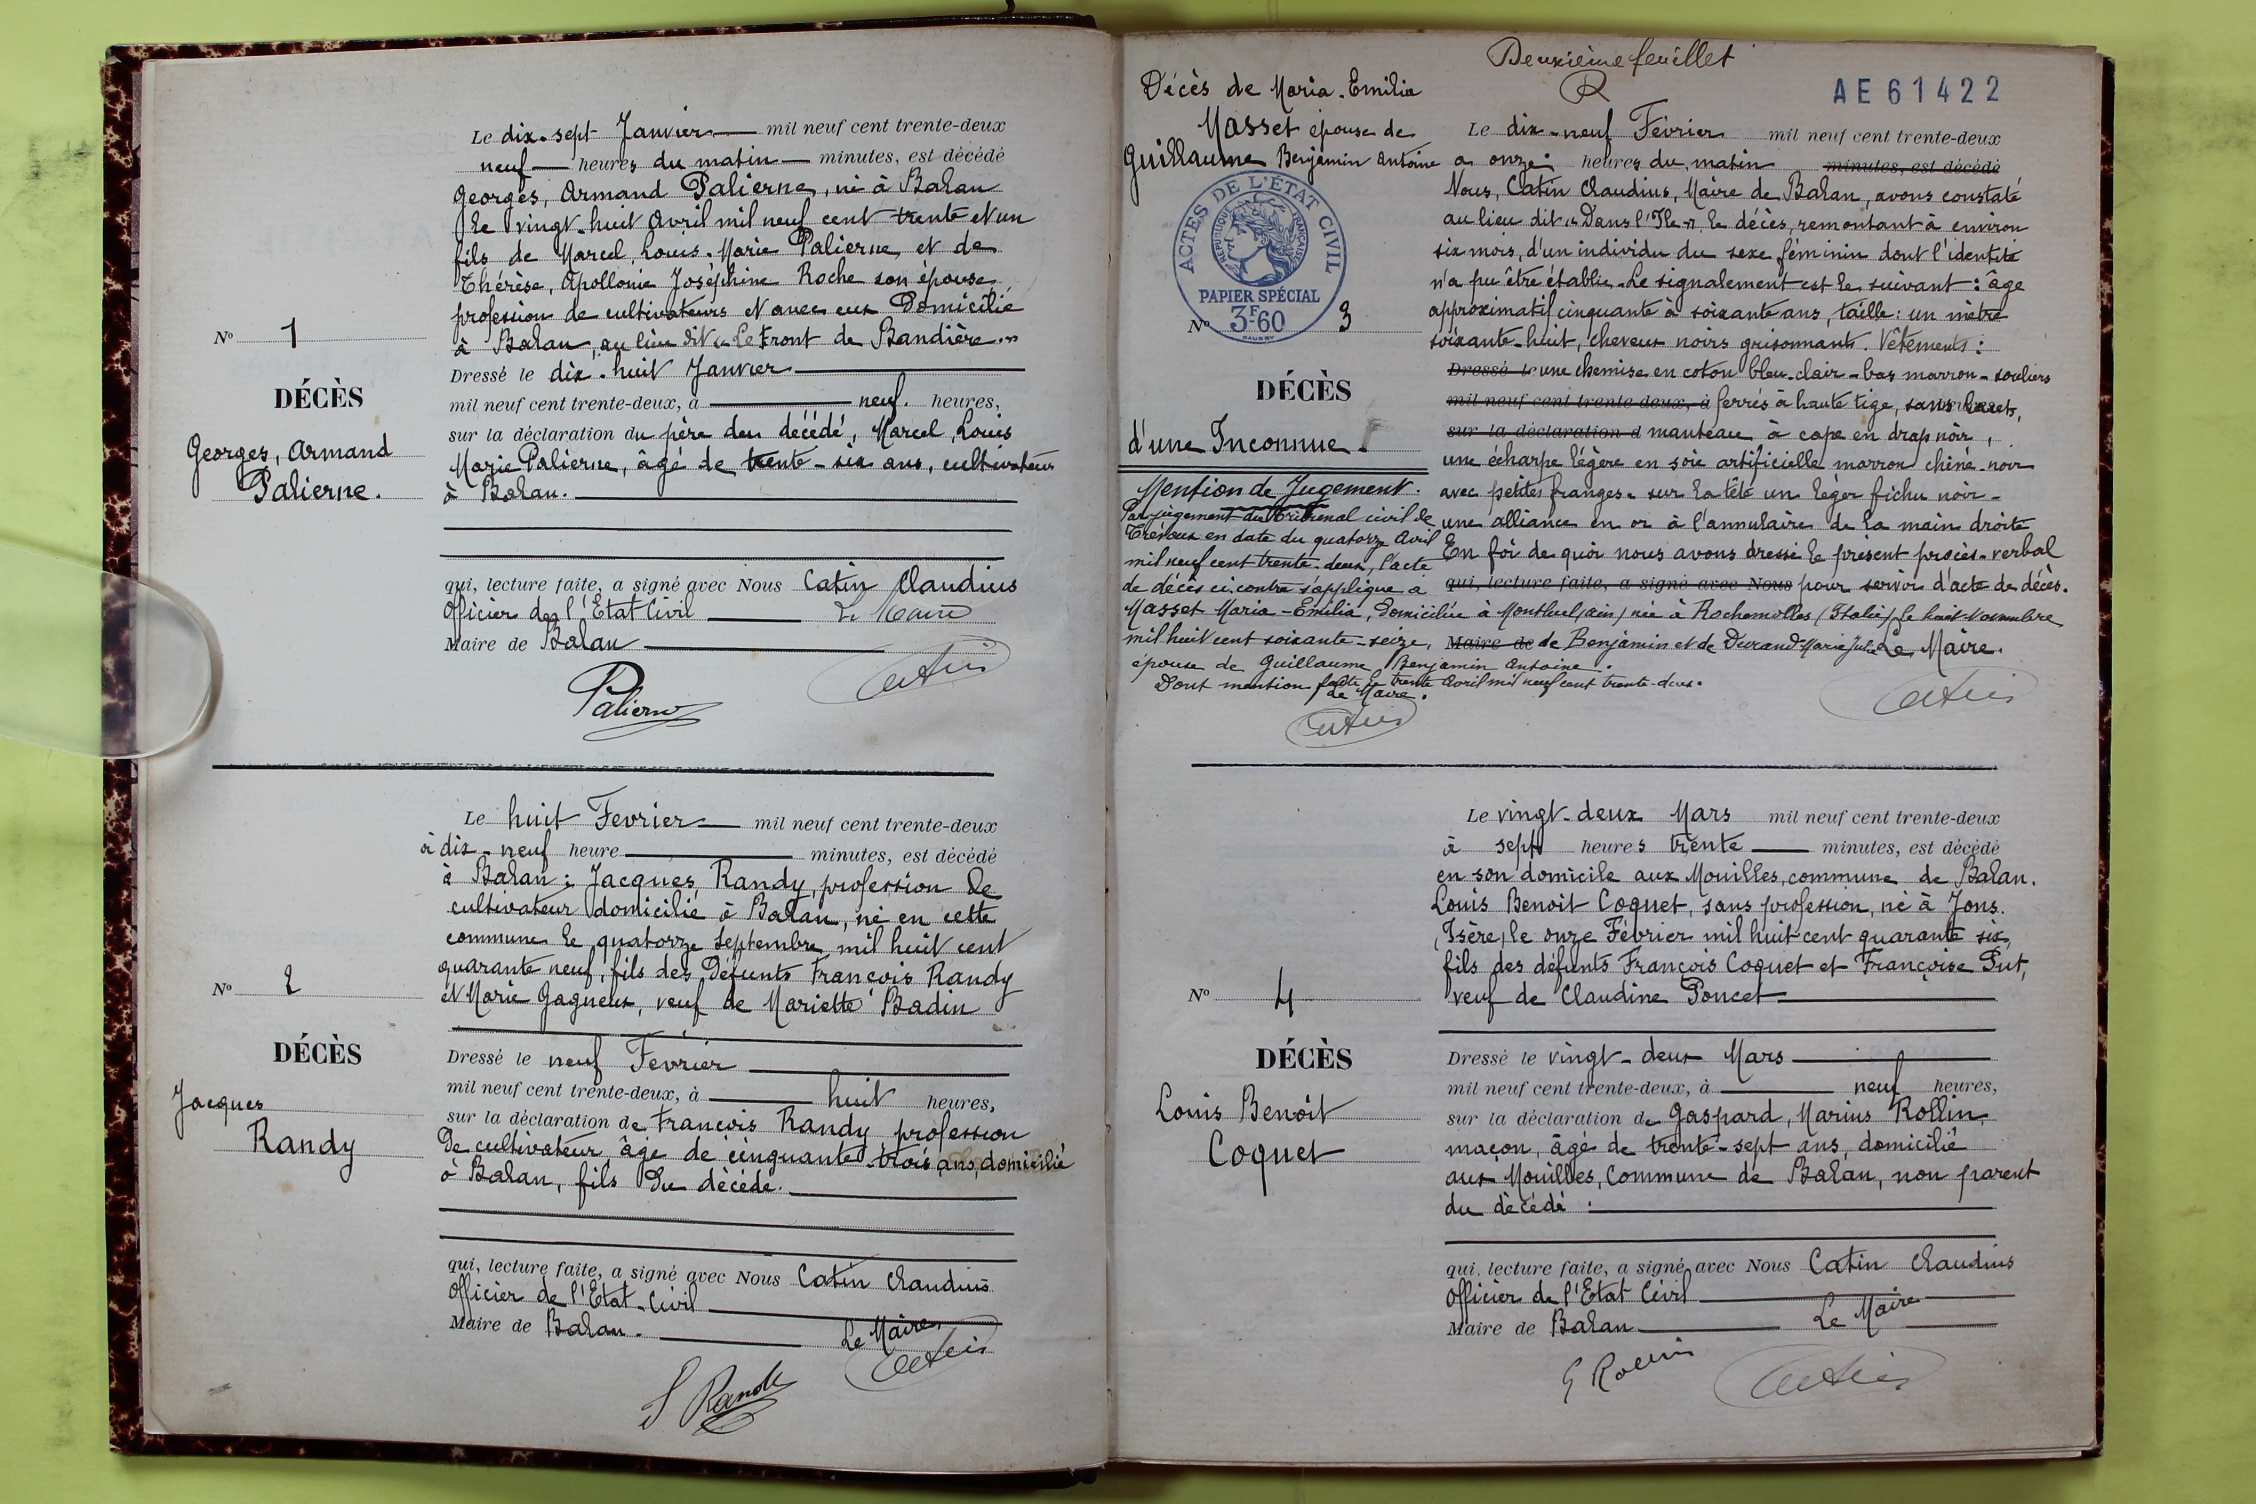 Le dix-sept Janvier mil neuf cent trente-deux
neuf heures du matin minutes, est décédé
Georges, Armand Palierne, né à Balan
le vingt-huit Avril mil neuf cent trente et un
fils de Marcel, Louis-Marie Palierne, et de
Thérèse, Apollonie Joséphine Roche son épouse,
profession de cultivateurs et avec eux Domicilié
à Balan, au lieu dit "Le Front de Bandière."
Nº 1
DÉCÈS
Georges, Armand
Palierne.
Dressé le dix-huit Janvier
mil neuf cent trente-deux, à neuf. heures,
sur la déclaration du père du décédé, Marcel, Louis
Marie Palierne, âgé de trente-six ans, cultivateur
à Balan.
qui, lecture faite, a signé avec Nous Catin Claudius
Officier de l'Etat Civil Le Maire
Maire de Balan
Catin
Palierne
Le huit Fevrier mil neuf cent trente-deux
à dix-neuf heure minutes, est décédé
à Balan : Jacques Randy, profession de
cultivateur domicilié à Balan, né en cette
commune le quatorze Septembre mil huit cent
quarante neuf, fils des Défunts François Randy
et Marie Gagneux, veuf de Mariette Badin
Nº 2
DÉCÈS
Jacques
Randy
Dressé le neuf Fevrier
mil neuf cent trente-deux, à huit heures,
sur la déclaration de François Randy profession
De cultivateur, âgé de cinquante-trois ans, domicilié
à Balan, fils Du décédé.
qui, lecture faite, a signé avec Nous Catin Claudius
Officier de l'Etat-Civil
Maire de Balan. Le Maire
Catin
F Randy
Deuxième feuillet
AE 61422
Décès de Maria-Emilia
Masset épouse de
Guillaume Benjamin Antoine
ACTES DE L'ÉTAT CIVIL
RÉPUBLIQUE FRANÇAISE
PAPIER SPÉCIAL
3F60
Nº 3
DÉCÈS
d'une Inconnue.
Le dix-neuf Février mil neuf cent trente-deux
à onze heures du matin minutes, est décédé
Nous, Catin Claudius, Maire de Balan, avons constaté
au lieu dit "Dans l'Ile", le décès, remontant à environ
six mois, d'un individu du sexe féminin dont l'identité
n'a pu être établie. Le signalement est le suivant : âge
approximatif cinquante à soixante ans, taille : un mètre
soixante-huit, cheveux noirs grisonnants. Vêtements :
Dressé le une chemise en coton bleu-clair - bas marron - souliers
mil neuf cent trente-deux, à ferrés à haute tige, sans lacets,
sur la déclaration d manteau à cape en drap noir,
une écharpe légère en soie artificielle marron chiné-noir
avec petites franges - sur la tête un léger fichu noir -
une alliance en or à l'annulaire de la main droite
En foi de quoi nous avons dressé le présent procès-verbal
qui, lecture faite, a signé avec Nous pour servir d'acte de décès.
Maire de Le Maire.
Catin
Mention de Jugement.
Par jugement du Tribunal civil de
Trévoux en date du quatorze Avril
mil neuf cent trente-deux, l'acte
de décès ci-contre s'applique à
Masset Maria-Emilia, domiciliée à Montluel (Ain) née à Rochemolles (Italie) le huit Novembre
mil huit cent soixante-seize, de Benjamin et de Durand Marie Julie
épouse de Guillaume Benjamin Antoine.
Dont mention faite le trente Avril mil neuf cent trente-deux.
Le Maire.
Catin
Le vingt-deux Mars mil neuf cent trente-deux
à sept heures trente minutes, est décédé
en son domicile aux Mouilles, commune de Balan.
Louis Benoit Coquet, sans profession, né à Jons.
(Isère) le onze Février mil huit cent quarante six,
fils des défunts François Coquet et Françoise Put,
veuf de Claudine Poncet
Nº 4
DÉCÈS
Louis Benoit
Coquet
Dressé le vingt-deux Mars
mil neuf cent trente-deux, à neuf heures,
sur la déclaration de Gaspard, Marius Rollin,
maçon, âgé de trente-sept ans, domicilié
aux Mouilles, Commune de Balan, non parent
du décédé.
qui, lecture faite, a signé avec Nous Catin Claudius
Officier de l'Etat Civil
Maire de Balan Le Maire
G Rollin
Catin